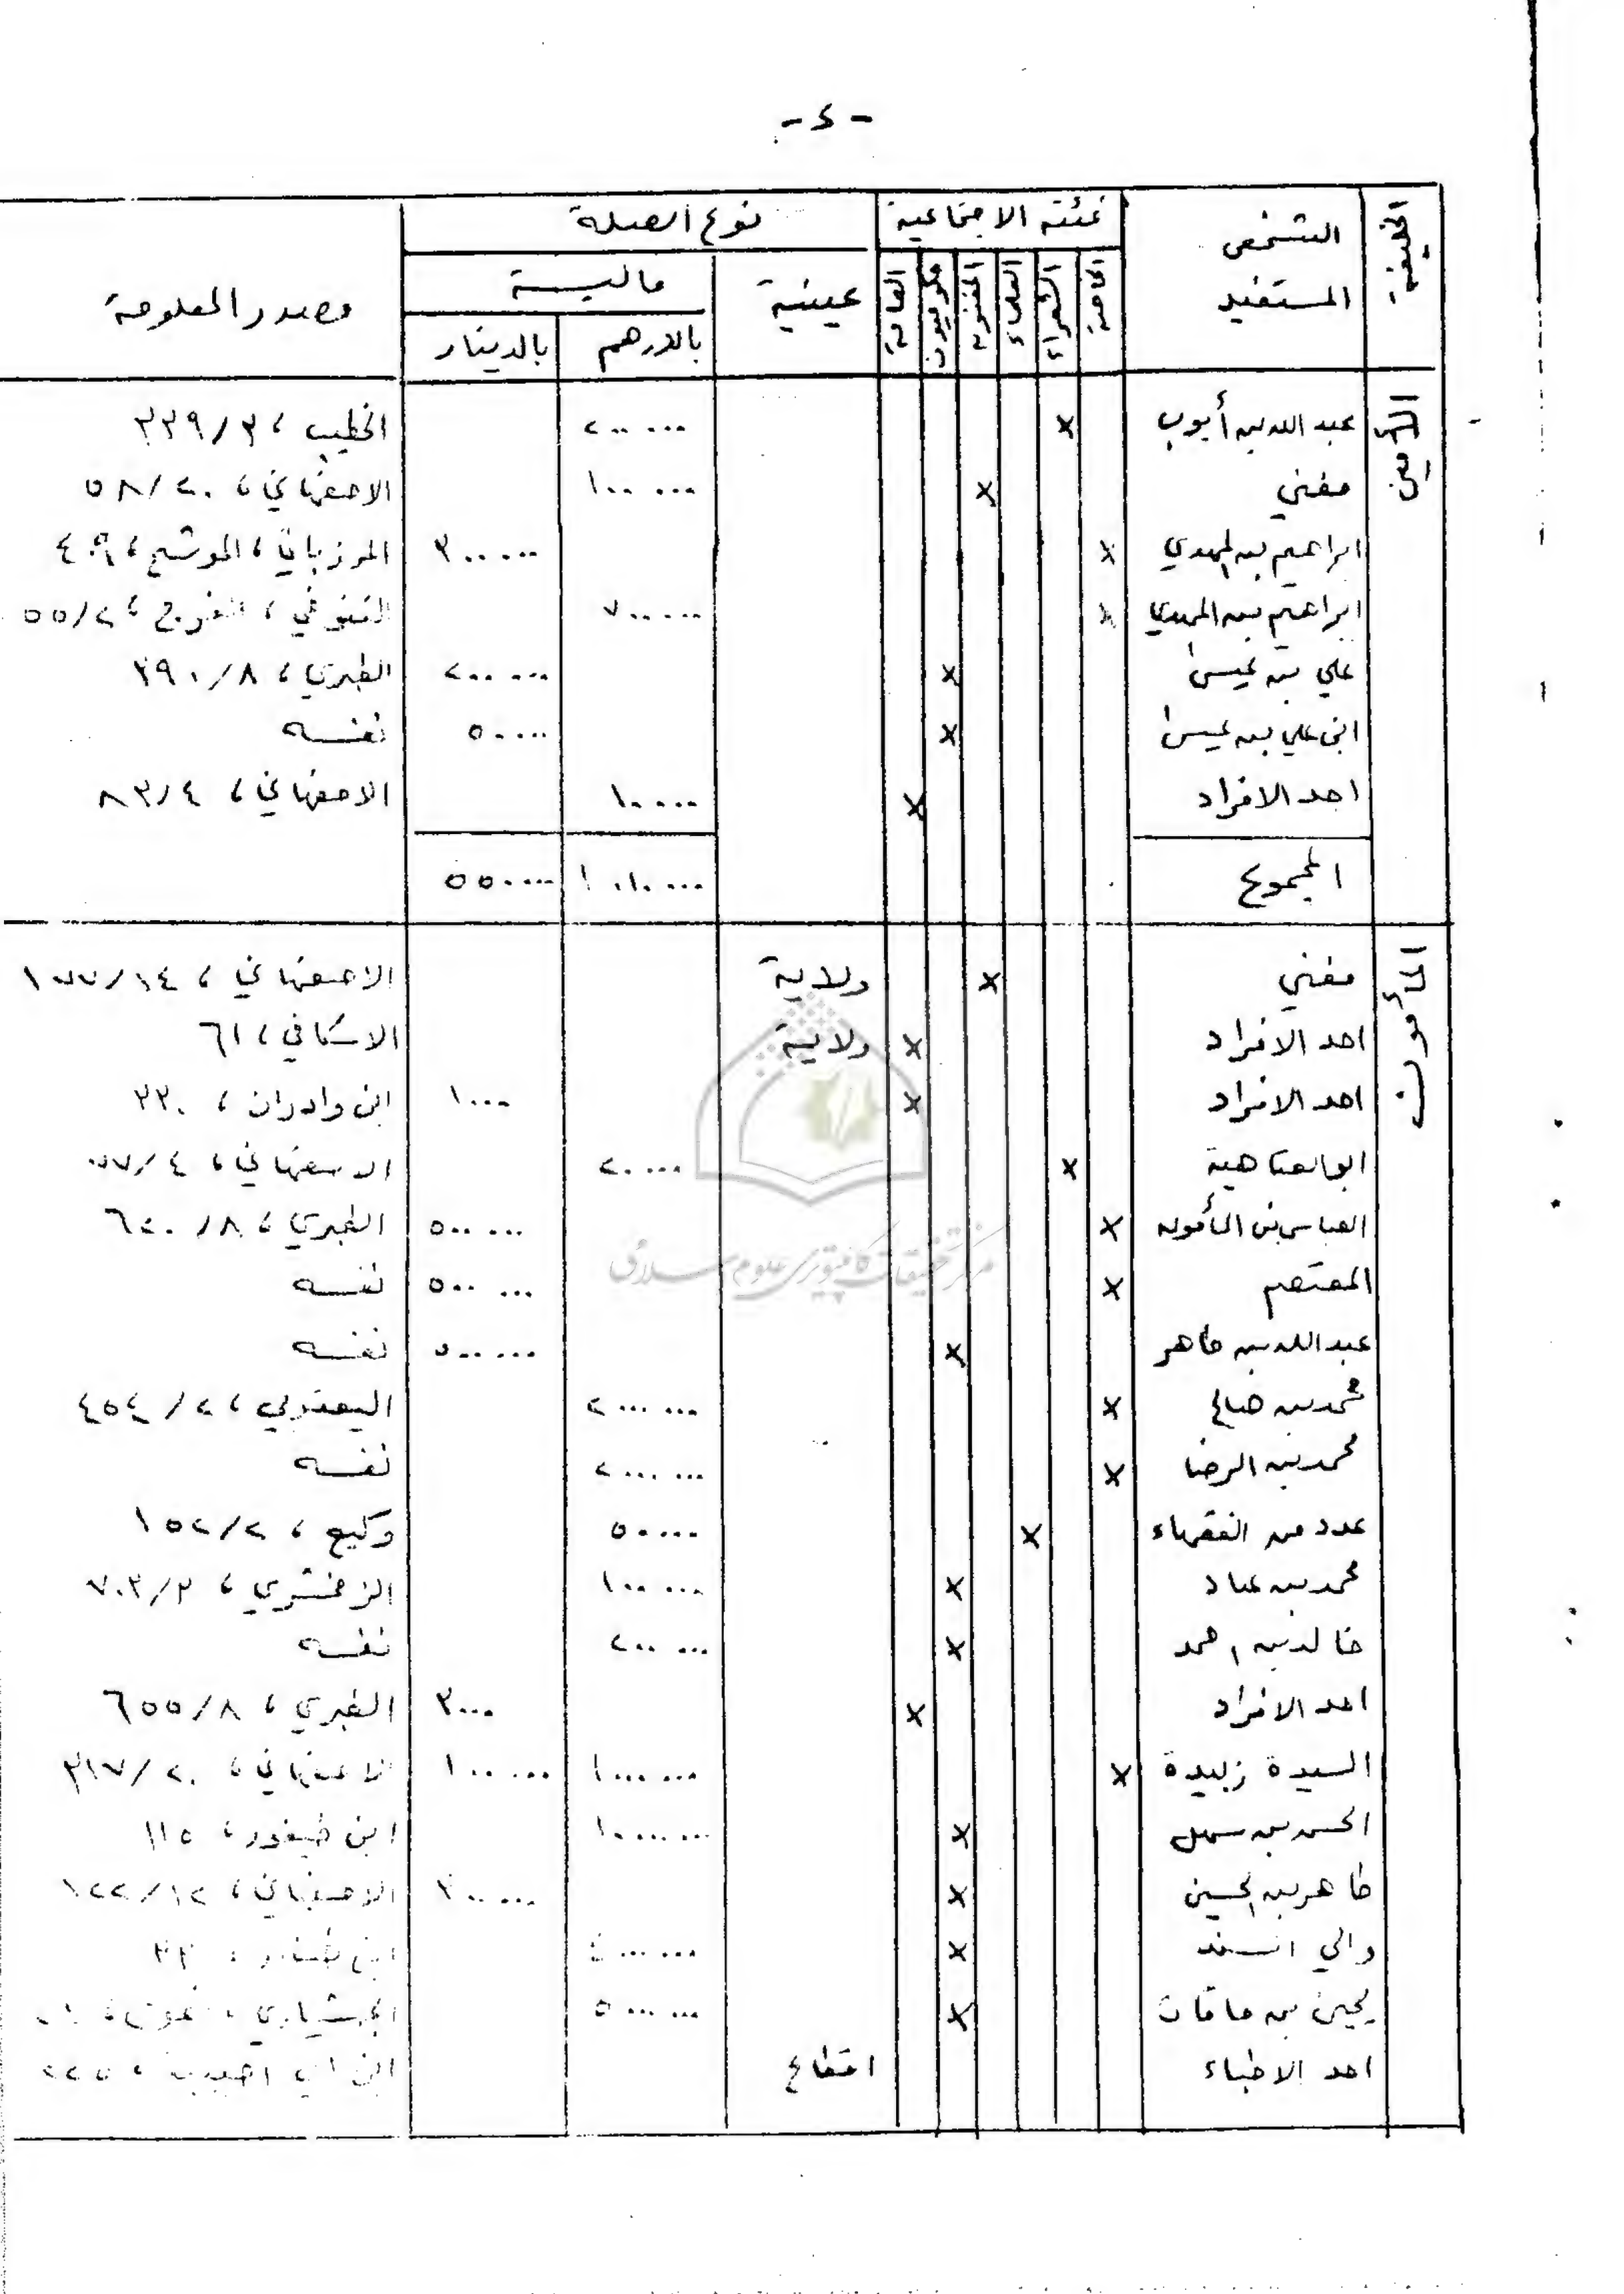 - ٤ -
الخليفة
الشخص المستفيد
فئته الاجتماعية
نوع الصلة
مصدر المعلومة
الخاصة
الشعراء
العلماء
المغنون
حكوميون
العامة
عينية
مالية
بالدرهم
بالدينار
الأمين
عبد الله بن أيوب x ٢٠٠٠٠٠ الخطيب ، ٣٣٩/٣
مغني x ١٠٠٠٠٠ الاصفهاني ، ٥٨/٢٠
ابراهيم بن المهدي x ٣٠٠٠٠٠ المرزباني ، الموشح ، ٤٠٩
ابراهيم بن المهدي x ٧٠٠٠٠٠ التنوخي ، الفرج ، ٥٥/٢
علي بن عيسى x ٢٠٠٠٠٠ الطبري ، ٣٩٠/٨
ابن علي بن عيسى x ٥٠٠٠٠ نفسه
احد الافراد x ١٠٠٠٠ الاصفهاني ، ٨٣/٤
المجموع ١٠١٠٠٠٠ ٥٥٠٠٠٠
المأمون
مغني x ولاية الاصفهاني ، ١٧٧/١٤
احد الافراد x ولاية الاسكافي ، ٦١
احد الافراد x ١٠٠٠ ابن وادران ، ٣٣٠
ابو العتاهية x ٢٠٠٠٠ الاصفهاني ،
العباس بن المأمون x ٥٠٠٠٠٠ الطبري ، ٦٢٠/٨
المعتصم x ٥٠٠٠٠٠ نفسه
عبد الله بن طاهر x ٥٠٠٠٠٠ نفسه
محمد بن صالح x ٢٠٠٠٠٠٠ اليعقوبي ، ٤٥٤/٢
محمد بن الرضا x ٢٠٠٠٠٠٠ نفسه
عدد من الفقهاء x ٥٠٠٠٠ وكيع ، ١٥٢/٢
محمد بن عباد x ١٠٠٠٠٠ الزمخشري ، ٧٠٣/٣
خالد بن احمد x ٢٠٠٠٠٠ نفسه
احد الافراد x ٣٠٠٠ الطبري ، ٦٥٥/٨
السيدة زبيدة x ١٠٠٠٠٠٠ ١٠٠٠٠٠ الاصفهاني ، ٣١٧/٢٠
الحسن بن سهل x ١٠٠٠٠٠٠٠ ابن طيفور ، ١١٥
طاهر بن الحسين x الاصفهاني ، ١٢٢/١٢
والي السند x ٤٠٠٠٠٠٠ ابن طيفور ، ٣٣
يحيى بن خاقان x ٥٠٠٠٠٠٠ الجهشياري ،
احد الاطباء اقطاع ابن ابي اصيبعة ،
مركز تحقيقات كامپيوتري علوم اسلامی